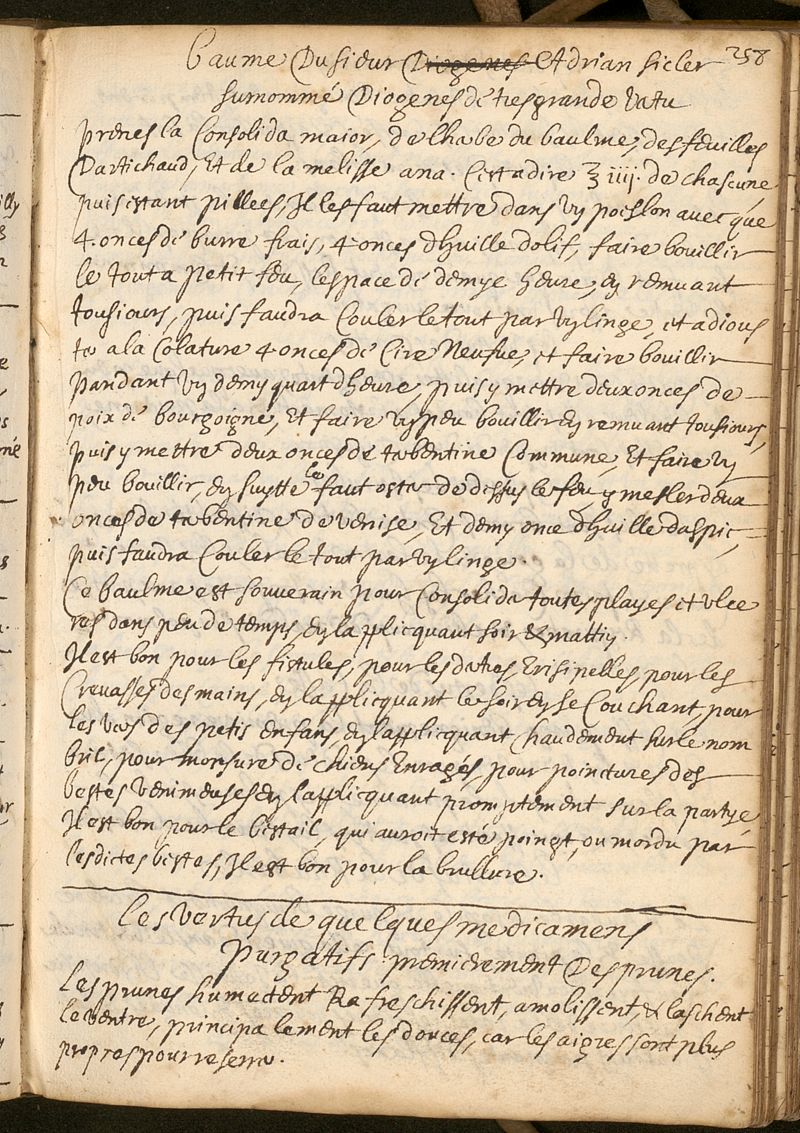 258
baume Du sieur Diogenes Adrian sicler
surnommé Diogenes de tresgrande vertu
prenes la Consolida maior, de lherbe du baulme, des feuilles
Dartichaud, Et de la melisse ana. Cest a dire ℥ iiij. de chascune
puis estant pillees, Il les faut mettre dans un poeslon avecque
4. onces de burre frais, 4 onces dhuille dolif, faire bouillir
le tout a petit feu, lespace de demye heure, en remuant
tousiours, puis faudra Couler le tout par un linge, et adious
ter a la Colature 4 onces de Cire Neufue, et faire bouillir
pandant un demy quart dheure, puis y mettre deux onces de
poix de bourgoigne, Et faire un peu bouillir en remuant tousiours,
puis y mettre deux onces de terbentine Commune, Et faire un
peu bouillir, en suytte le faut oster de dessus le feu y mesler deux
onces de terbentine de venise, Et demy once dhuille daspic,
puis faudra Couler le tout par un linge.
Ce baulme est souverain pour Consolider toutes playes et ulce
res dans peu de temps, en lapplicquant soir & mattin.
Il est bon pour les fistules, pour les dartres, Erisipelles, pour les
Crevasses des mains, en lapplicquant le soir en se Couchant, pour
les vers des petis enfans, en lapplicquant chaudement sur le nom
bril, pour morsure de chiens Enragés, pour pointures des
bestes venimeuses en lapplicquant promptement sur la partye
Il est bon pour le bestail, qui auroit esté poingt, ou mordu par
lesdictes bestes, Il est bon pour la brullure.
Les vertus de quelques medicamens
Purgatifs premierement Des prunes.
Les prunes humectent Rafreschissent, amolissent, & laschent
le ventre, principalement les douces, car les aigres sont plus
propres pour reserrer.